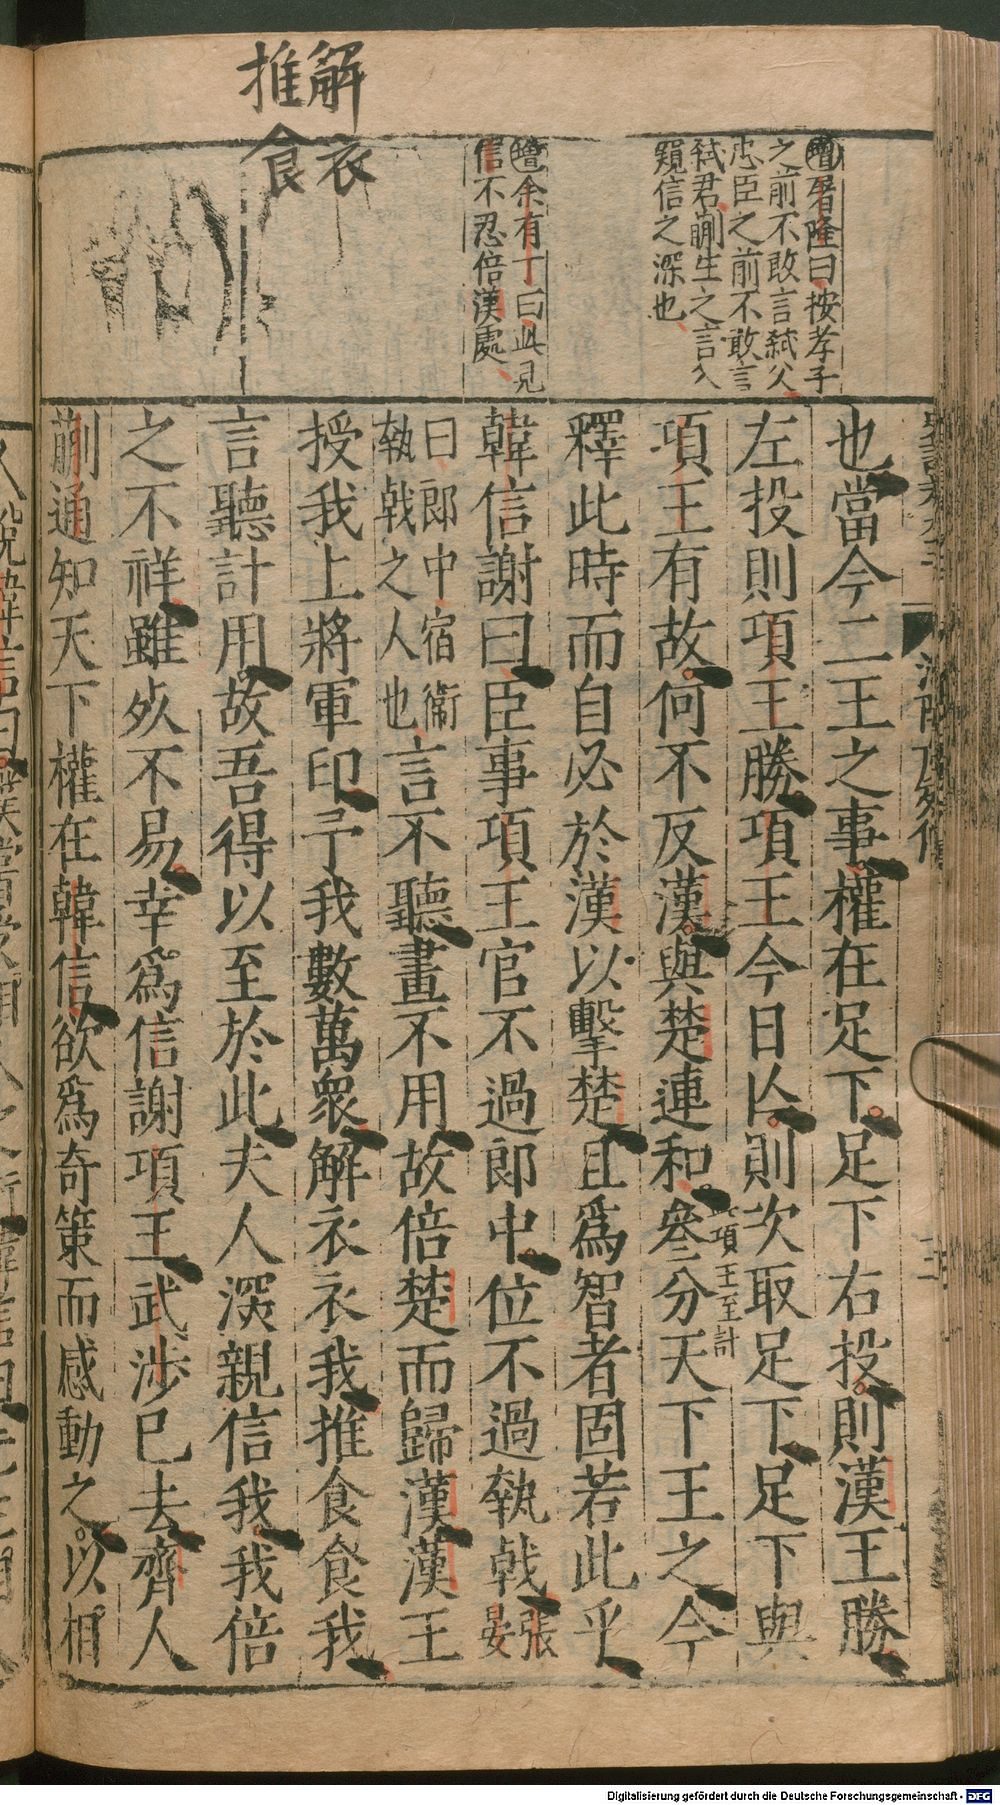 解衣
推食
增屠隆曰按孝子
之前不敢言弑父
忠臣之前不敢言
弑君蒯生之言久
窺信之深也
增余有丁曰此見
信不忍倍漢處
也當今二王之事權在足下足下右投則漢王勝
左投則項王勝項王今日亾則次取足下足下與
項王有故何不反漢與楚連和參分天下王之今
此項王至計
釋此時而自必於漢以擊楚且爲智者固若此乎
韓信謝曰臣事項王官不過郎中位不過執戟張晏
曰郎中宿衞
執戟之人也
言不聽畫不用故倍楚而歸漢漢王
授我上將軍印予我數萬衆解衣衣我推食食我
言聽計用故吾得以至於此夫人深親信我我倍
之不祥雖死不易幸爲信謝項王武涉已去齊人
蒯通知天下權在韓信欲爲奇策而感動之以相
Digitalisierung gefördert durch die Deutsche Forschungsgemeinschaft - DFG